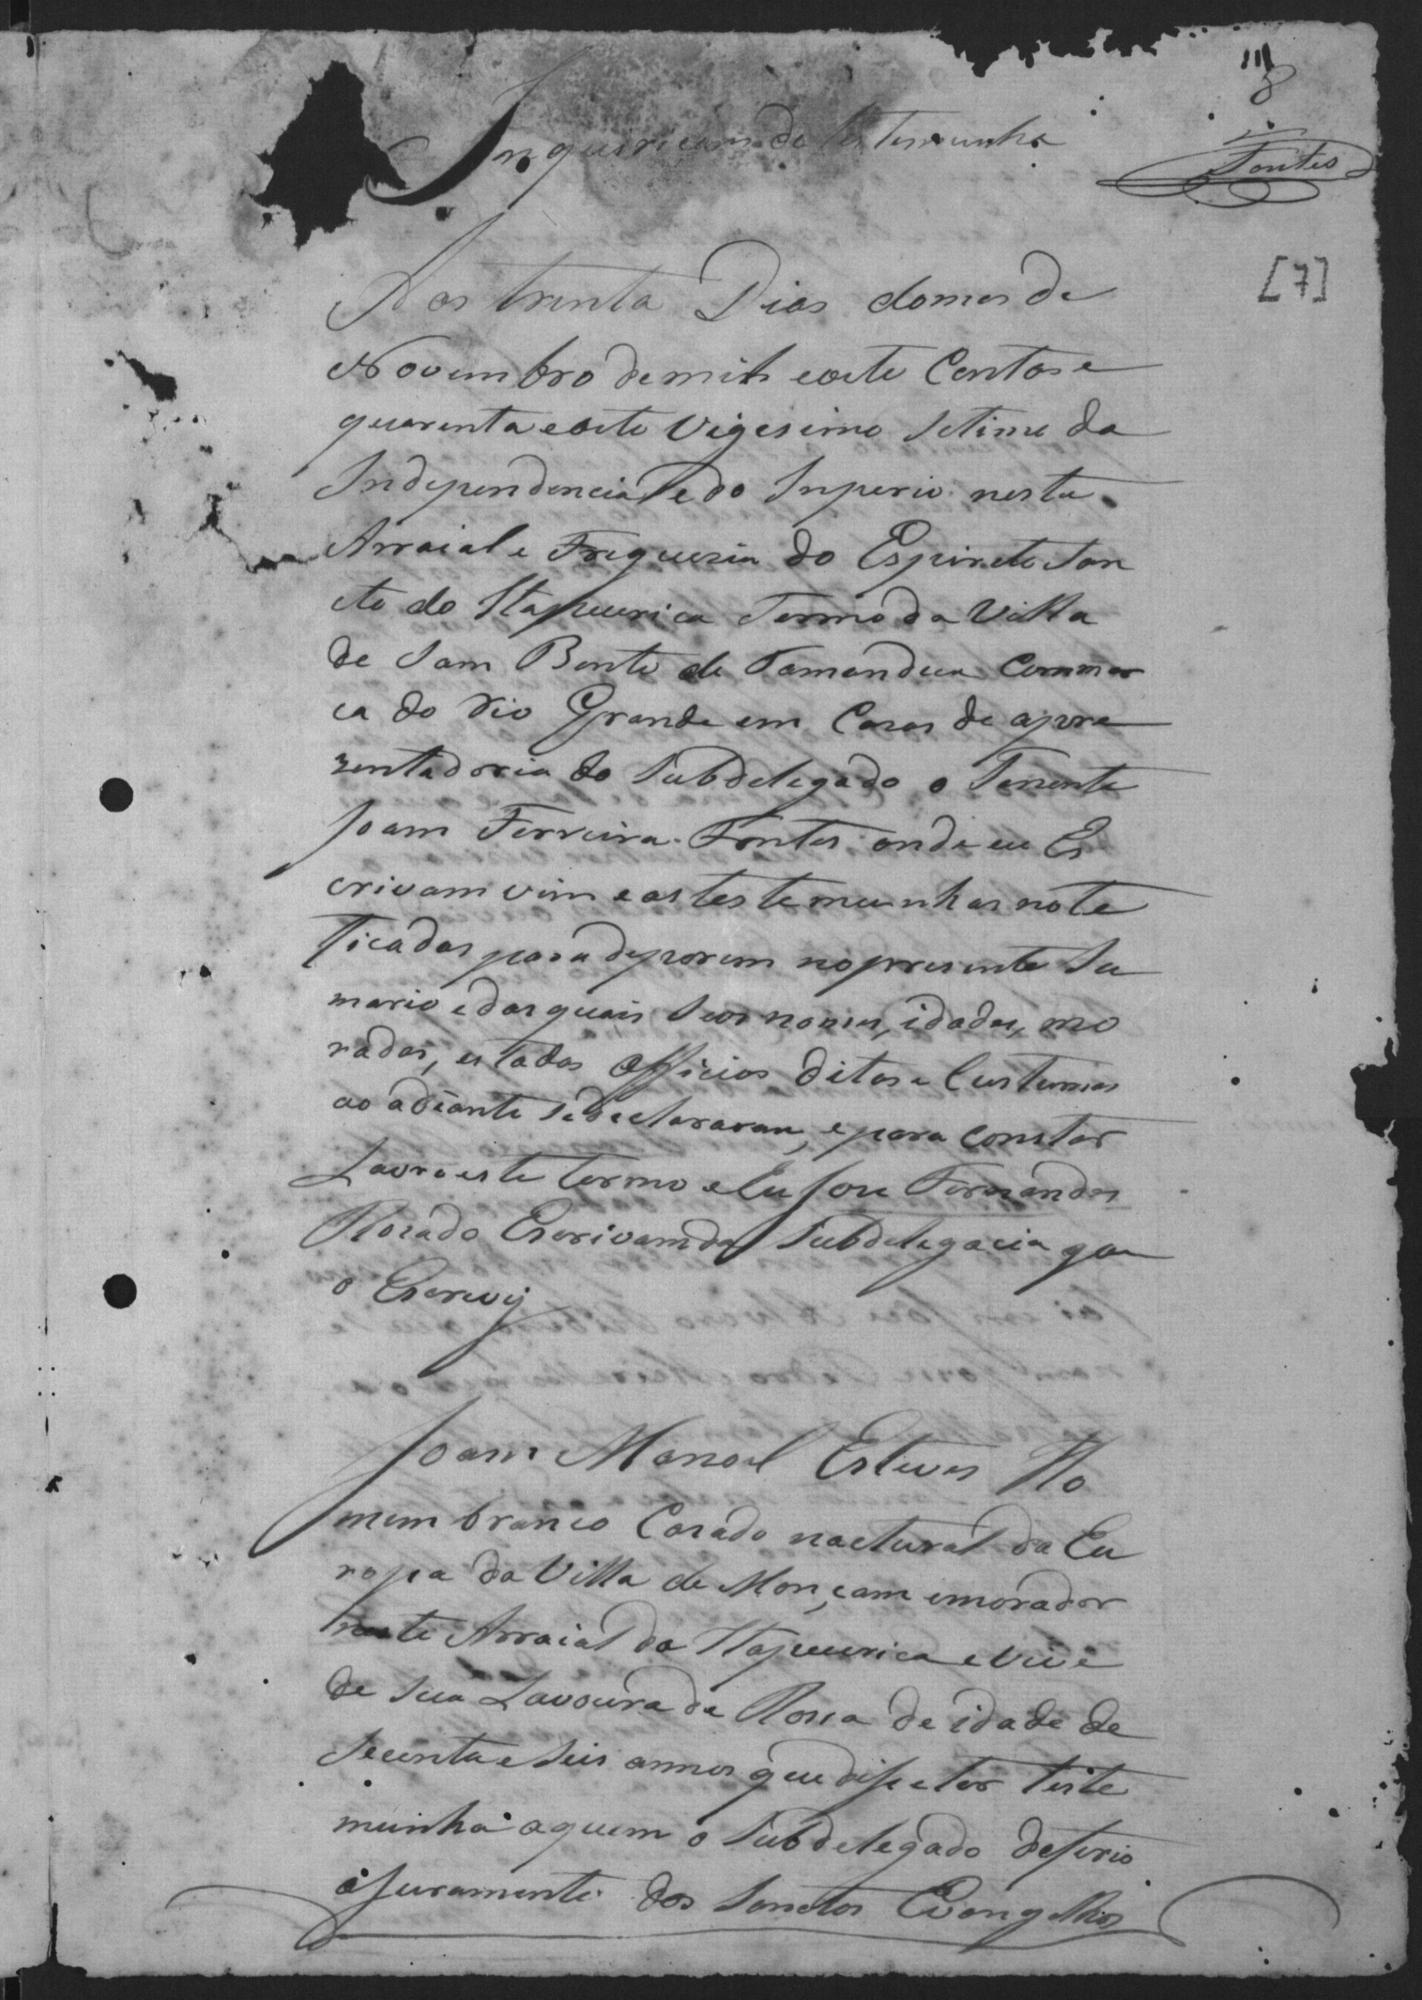 8
Fontes
Inquiriçam de testemunha
[7]
Aos trinta Dias do mes de
Novembro de mil e oito Centos e
quarenta e oito Vigesimo Setimo da
Independencia e do Inperio neste
Arraial e Freguezia do Espirito San
cto do Itapecerica Termo da Villa
de Sam Bento de Tamandua Commar
ca do Rio Grande em Casas de apoze
zentadoria do Subdelegado o Tenente
Joam Ferreira Fontes onde eu Es
crivam vim e as testemunhas note
ficadas para deporem no presente Su
mario e das quais Seos nomes, idades, mo
radas, estados officios ditos e Custumes
ao adiante Se declararam, e para constar
Lavro este termo e Eu Jose Fernandes
Rosado Escrivam da Subdelegacia que
o Escrevy
Joam Manoel Esteves Ho
mem branco Casado nactural da Eu
ropa da Villa de Monçam e morador
neste Arraial da Itapecerica e vive
de sua Lavoura de Rossa de idade de
Secenta e Seis annos que disse ter teste
munha aquem o Subdelegado deferio
o juramento dos Sanctos Evangelhos